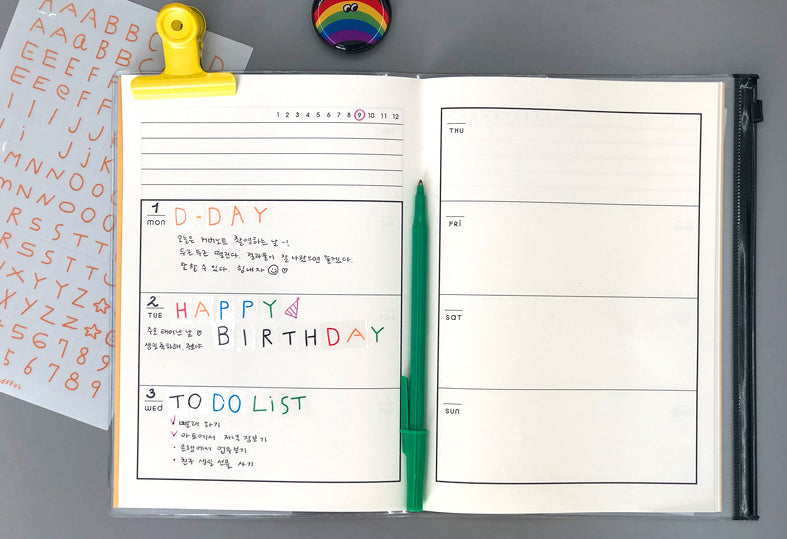 A A B B
A A a B B
E E E F F
E E e F F
I I I J J
i i J j K
M N N O O
m N N O O O
R S S T T
R S S T T U
X Y Y Z Z
X Y Y Z Z
5 6 7 8 9
5 6 7 8 9
1 2 3 4 5 6 7 8 9 10 11 12
1 MON D-DAY
오늘은 커버노트 촬영하는 날~!
두근두근 떨린다. 결과물이 잘 나왔으면 좋겠다.
잘할 수 있다. 힘내자
2 TUE HAPPY
수호 태어난 날
BIRTHDAY
생일 축하해,
3 WED TO DO LiST
빨래 하기
마트에서 저녁 장보기
은행에서 업무보기
친구 생일 선물 사기
THU
FRI
SAT
SUN